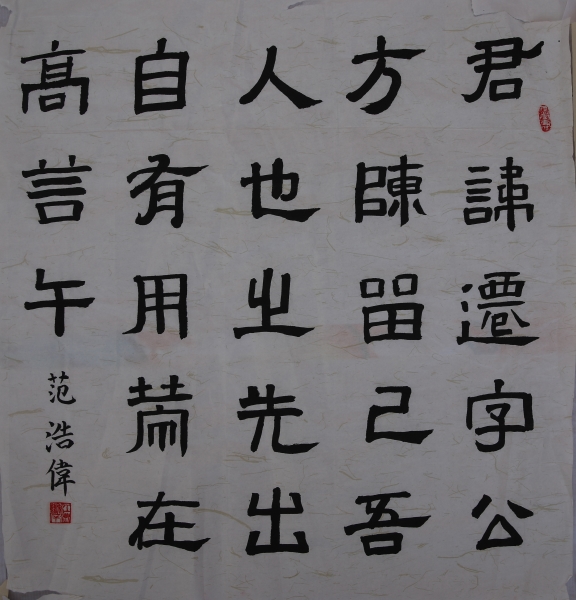 君諱遷字公
方陳留己吾
人也之先出
自有用在
高言午
范浩偉